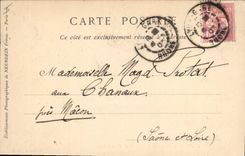 CARTE POSTALE
Ce côté est exclusivement réservé
Mademoiselle Magd. Protat
aux Chanaux
près Mâcon
(Saône et Loire)
Etablissements Photographiques de NEURDEIN Frères. — Paris